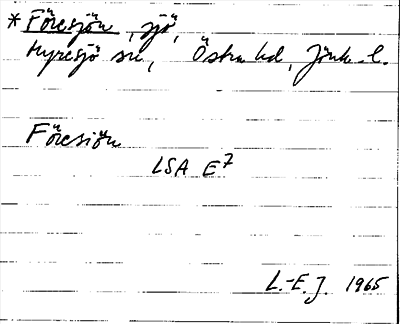 * Föresjön, sjö,
Myresjö sn, Östra hd, Jönk. l.
Föresiön
LSA E7
L.-E.J. 1965